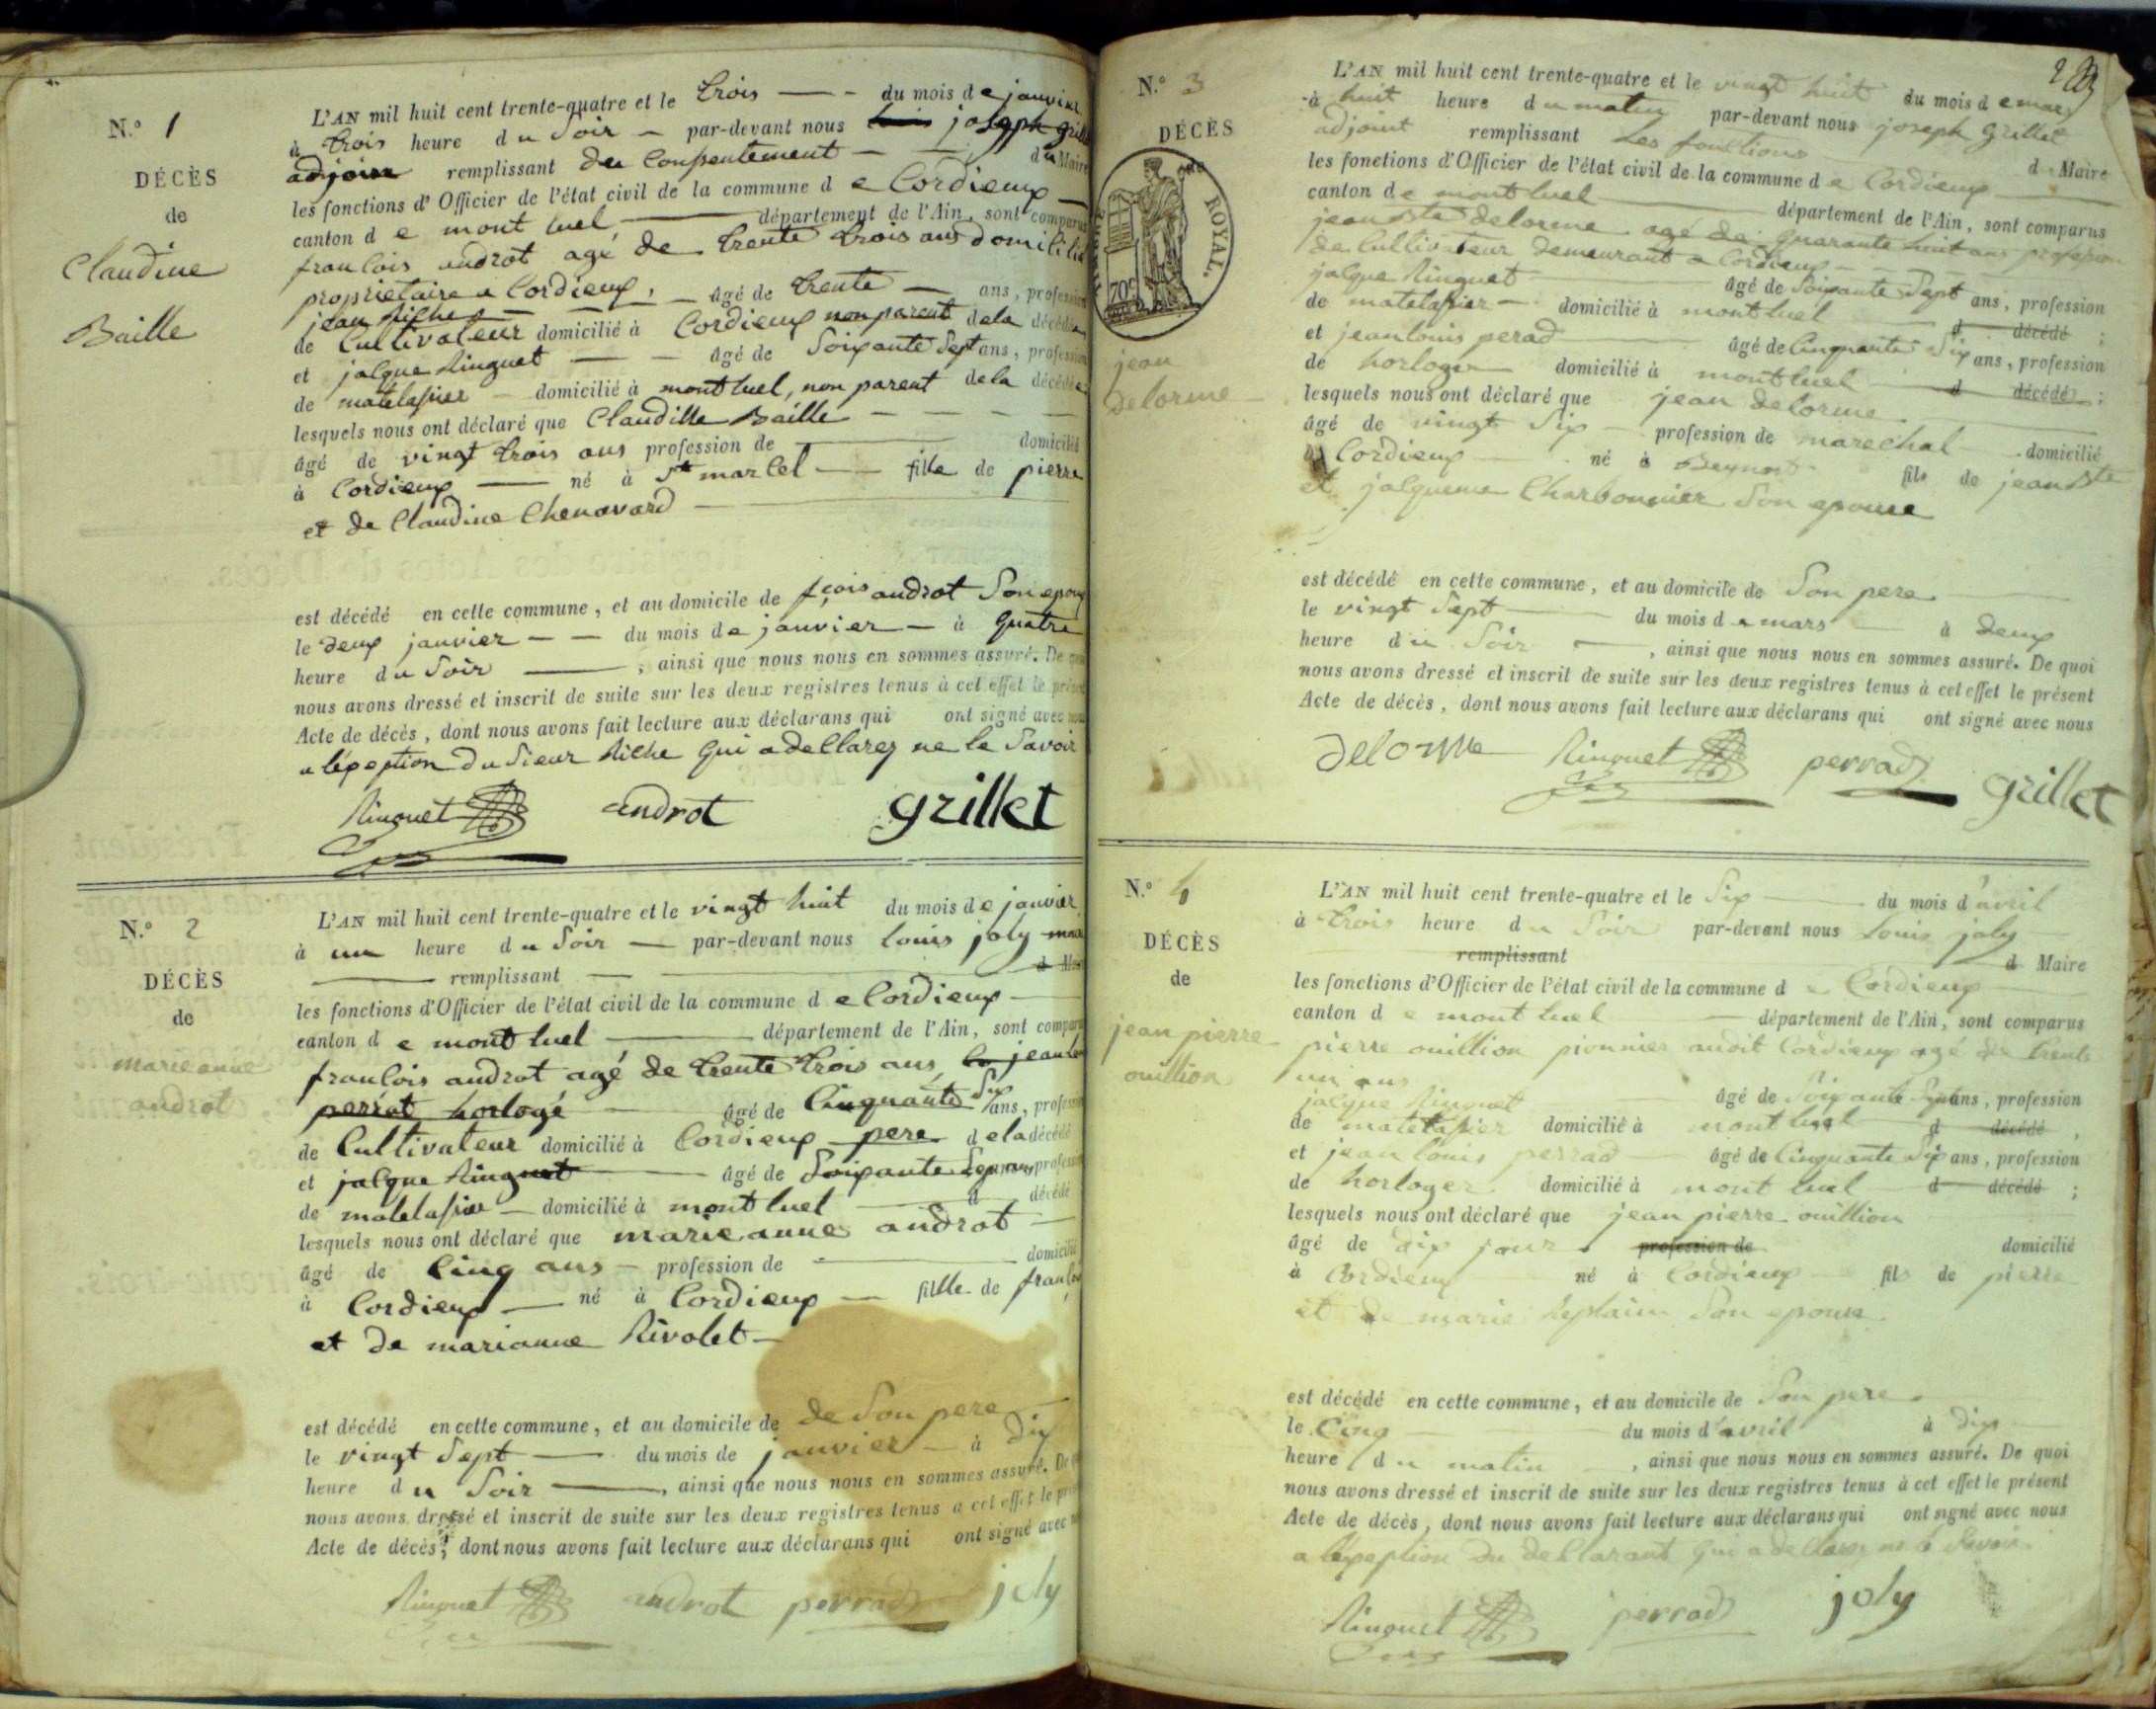 N.º 1
DÉCÈS
de
Claudine
Baille
L'AN mil huit cent trente-quatre et le trois du mois de janvier
à trois heure du Soir par-devant nous joseph grillet
adjoin remplissant du Consentement du Maire
les fonctions d'Officier de l'état civil de la commune de Cordieux
canton de mont luel département de l'Ain, sont comparus
francois androt agé de trente trois ans domicilié
propriétaire a Cordieux,
jean Riche âgé de trente ans, profession
de Cultivateur domicilié à Cordieux non parent dela décédée
et jacque Ringuet âgé de Soixante Sept ans, profession
de matelasier domicilié à mont luel, non parent dela décédée
lesquels nous ont déclaré que Claudine Baille
âgé de vingt trois ans profession de domicilié
à Cordieux né à St marcel fille de pierre
et de Claudine Chenavard
est décédé en cette commune, et au domicile de fçois androt Son epoux
le deux janvier du mois de janvier à quatre
heure du Soir, ainsi que nous nous en sommes assuré. De quoi
nous avons dressé et inscrit de suite sur les deux registres tenus à cet effet le présent
Acte de décès, dont nous avons fait lecture aux déclarans qui ont signé avec nous
a lexeption du Sieur Riche qui a declarez ne le Savoir
Ringuet androt grillet
N.º 2
DÉCÈS
de
marie anne
androt
L'AN mil huit cent trente-quatre et le vingt huit du mois de janvier
à un heure du Soir par-devant nous Louis joly maire
remplissant
les fonctions d'Officier de l'état civil de la commune de Cordieux
canton de mont luel département de l'Ain, sont comparus
francois androt agé de trente trois ans,
perrot horlogé âgé de Cinquante Six ans, profession
de Cultivateur domicilié à Cordieux pere dela décédé
et jacque Ringuet âgé de Soixante Sept ans, profession
de matelasier domicilié à mont luel d décédé
lesquels nous ont déclaré que marie anne androt
âgé de Cinq ans profession de domicilié
à Cordieux né à Cordieux fille de francois
et de marianne Rivolet
est décédé en cette commune, et au domicile de de Son pere
le vingt Sept du mois de janvier à dix
heure du Soir, ainsi que nous nous en sommes assuré. De quoi
nous avons dressé et inscrit de suite sur les deux registres tenus à cet effet le présent
Acte de décès, dont nous avons fait lecture aux déclarans qui ont signé avec nous
Ringuet androt perrad joly
2
N.º 3
DÉCÈS
de
ROYAL.
70c
jean
delorme
L'AN mil huit cent trente-quatre et le vingt huit du mois de mars
à huit heure du matin par-devant nous joseph grillet
adjoint remplissant Les fonctions d Maire
les fonctions d'Officier de l'état civil de la commune de Cordieux
canton de mont luel département de l'Ain, sont comparus
jean Bte delorme agé de quarante huit ans profession
de Cultivateur demeurant a Cordieux
jacque Ringuet âgé de Soixante Sept ans, profession
de matelasier domicilié à mont luel d décédé ;
et jean louis perad âgé de Cinquante Six ans, profession
de horloger domicilié à mont luel d décédé ;
lesquels nous ont déclaré que jean delorme
âgé de vingt Six profession de marechal domicilié
à Cordieux né à Beynost fils de jean Bte
et jacqueme Charbonnier Son epouse
est décédé en cette commune, et au domicile de Son pere
le vingt Sept du mois de mars à deux
heure du Soir, ainsi que nous nous en sommes assuré. De quoi
nous avons dressé et inscrit de suite sur les deux registres tenus à cet effet le présent
Acte de décès, dont nous avons fait lecture aux déclarans qui ont signé avec nous
delorme Ringuet perrad grillet
N.º 4
DÉCÈS
de
jean pierre
ouillion
L'AN mil huit cent trente-quatre et le Six du mois d'avril
à trois heure du Soir par-devant nous Louis joly
remplissant d Maire
les fonctions d'Officier de l'état civil de la commune de Cordieux
canton de mont luel département de l'Ain, sont comparus
pierre ouillion pionnier audit Cordieux agé de trente
un ans
jacque Ringuet âgé de Soixante Sept ans, profession
de matelasier domicilié à mont luel d décédé
et jean louis perrad âgé de Cinquante Six ans, profession
de horloger domicilié à mont luel d décédé ;
lesquels nous ont déclaré que jean pierre ouillion
âgé de dix jour profession de domicilié
à Cordieux né à Cordieux fils de pierre
et de marie Son epouse
est décédé en cette commune, et au domicile de Son pere
le Cinq du mois d'avril à dix
heure du matin, ainsi que nous nous en sommes assuré. De quoi
nous avons dressé et inscrit de suite sur les deux registres tenus à cet effet le présent
Acte de décès, dont nous avons fait lecture aux déclarans qui ont signé avec nous
a lexeption du declarant qui a declarez ne le Savoir
Ringuet perrad joly